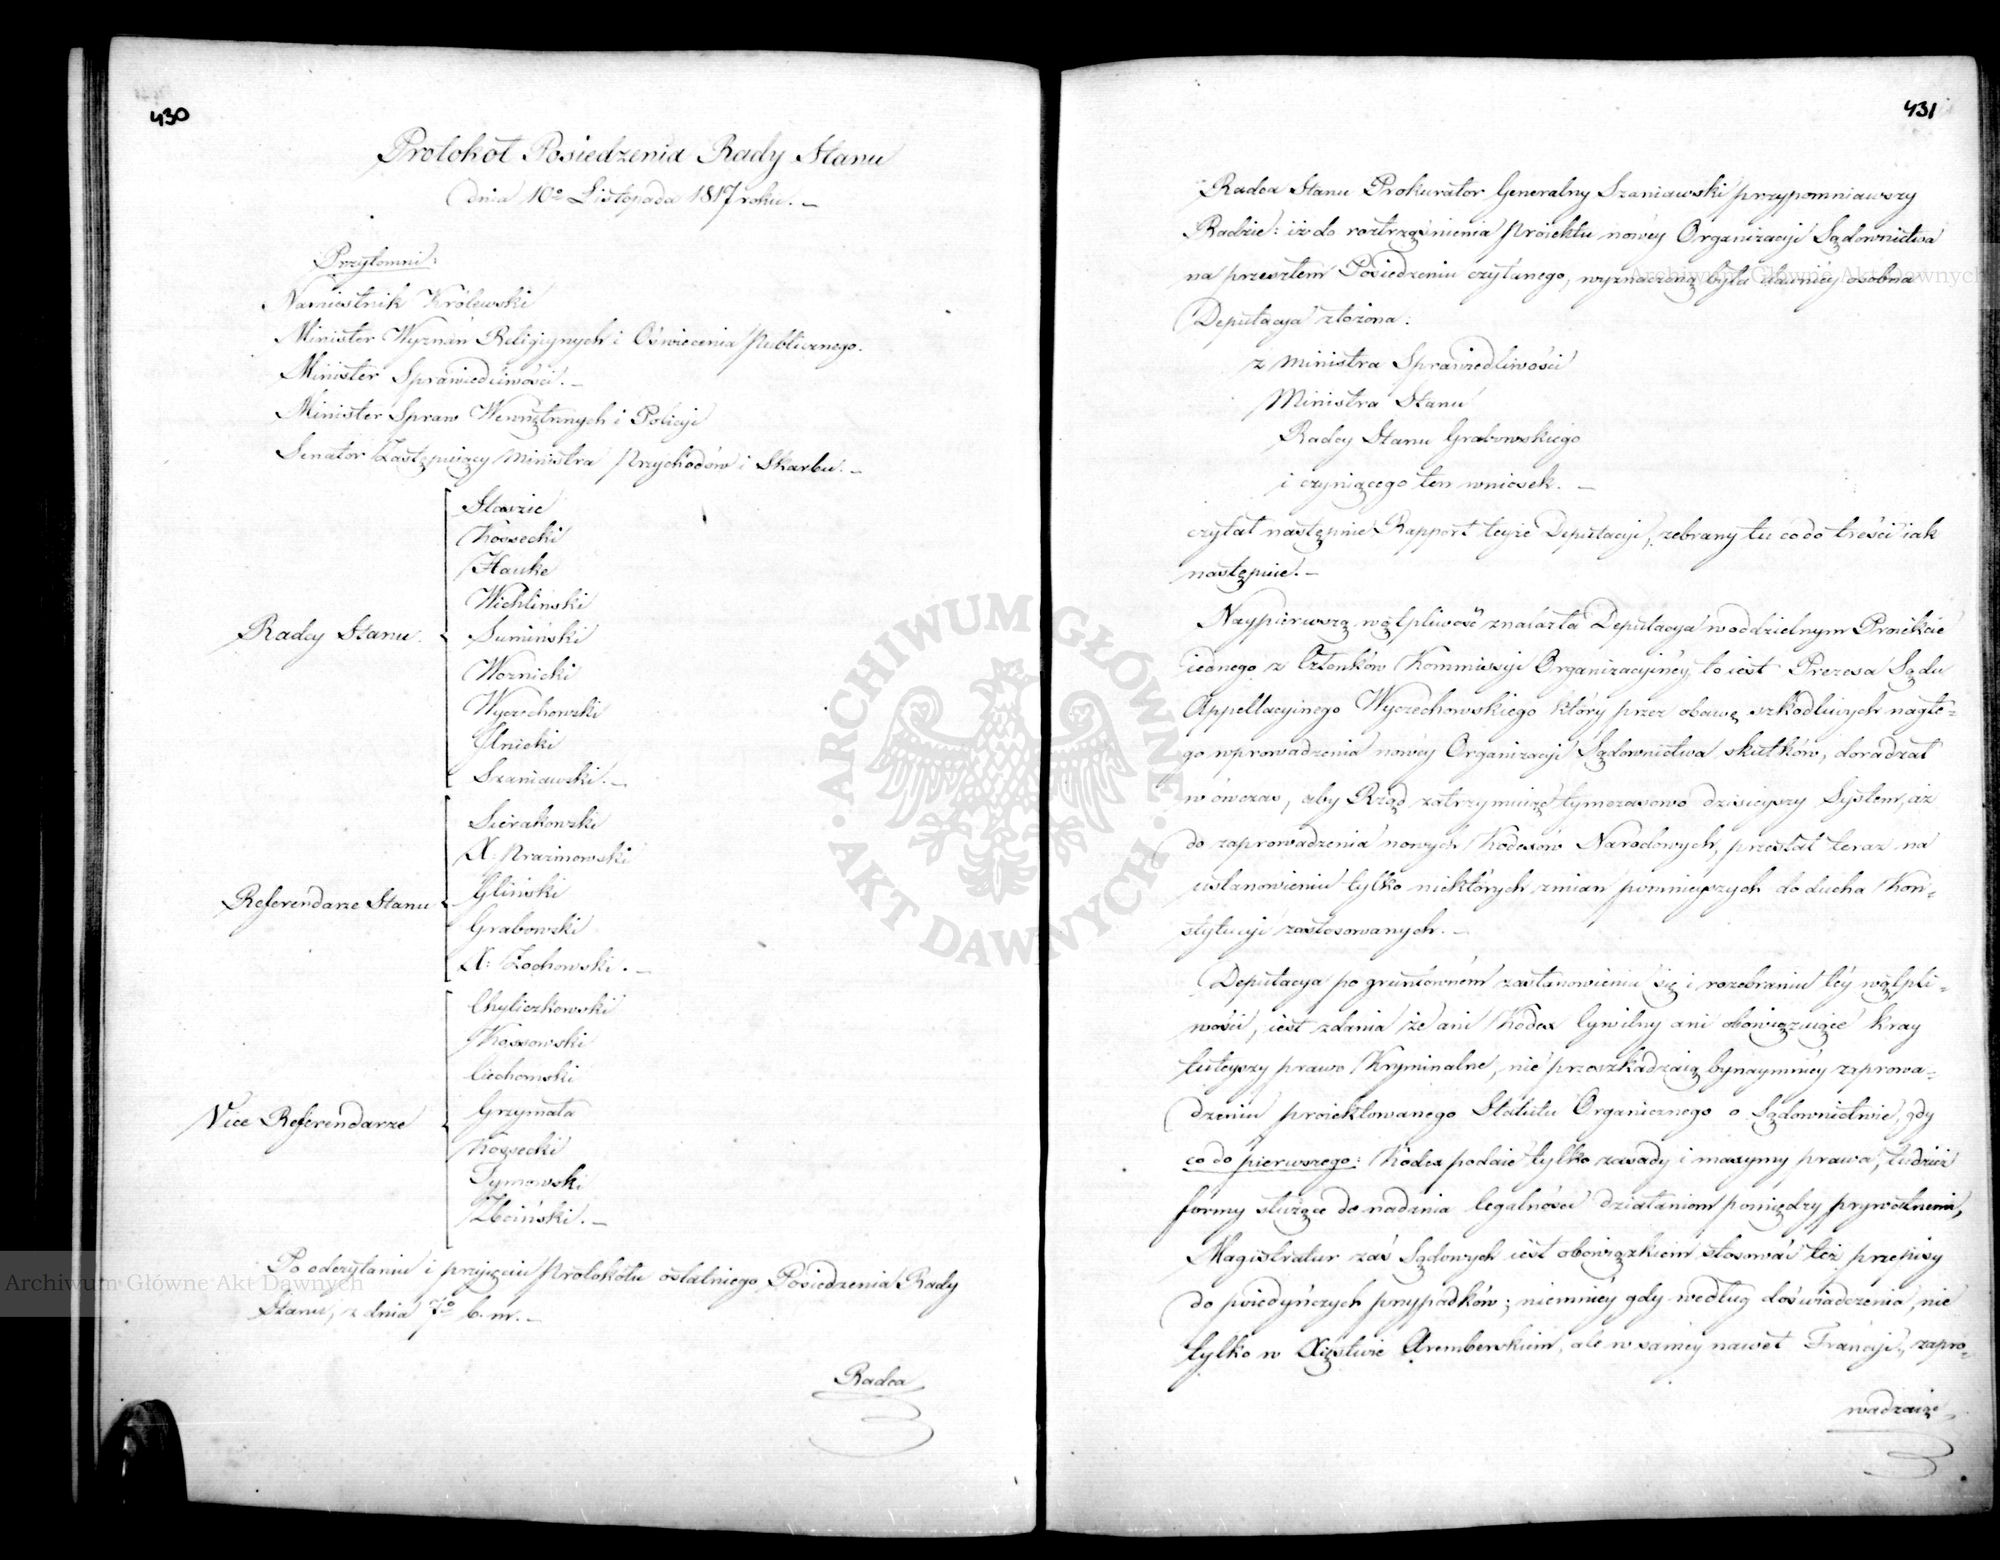 430
Protokół Posiedzenia Rady Stanu
dnia 10º Listopada 1817 roku. –
Przytomni:
Namiestnik Królewski
Minister Wyznań Religiynych i Oświecenia Publicznego.
Minister Sprawiedliwości. –
Minister Spraw Wewnętrznych i Policyi
Senator Zastępuiący Ministra Przychodów i Skarbu. –
Radcy Stanu.
Staszic
Kossecki
Hauke
Wichliński
Sumiński
Woznicki
Wyczechowski
Glnicki
Szaniawski. –
Referendarze Stanu
Sierakowski
X: Prazmowski
Gliński
Grabowski
X: Żochowski. –
Vice Referendarze
Chyliczkowski
Kossowski
Ciechomski
Grzymała
Kossecki
Tymowski
Zboiński. –
Po odczytaniu i przyjęciu Protokołu ostatniego Posiedzenia Rady
Stanu, z dnia 7º b. m. –
Radca
431
Radca Stanu Prokurator Generalny Szaniawski przypomniawszy
Radzie: iż do roztrząśnienia Proiektu nowéy Organizacyi Sądownictwa
na przeszłem Posiedzeniu czytanego, wyznaczoną była dawniéy osobna
Deputacya złożona:
z Ministra Sprawiedliwości
Ministra Stanu
Radcy Stanu Grabowskiego
i czyniącego ten wniosek. –
czytał następnie Rapport teyże Deputacyi, zebrany tu co do treści iak
następuie. –
Naypierwszą wątpliwość znalazła Deputacya w oddzielnym Proiekcie
iednego z Członków Kommissyi Organizacyinéy, to iest Prezesa Sądu
Appellacyinego Wyczechowskiego który przez obawę szkodliwych nagłe-
go wprowadzenia nowéy Organizacyi Sądownictwa skutków, doradzał
wówczas, aby Rząd zatrzymuiąc tymczasowo dzisieyszy System, aż
do zaprowadzenia nowych Kodexów Narodowych, przestał teraz na
ustanowieniu tylko niektórych zmian pomnieyszych do ducha Kon-
stytucyi zastosowanych. –
Deputacya po gruntowném zastanowieniu się i rozebraniu téy wątpli-
wości, iest zdania że ani Kodex Cywilny ani obowiązuiące Kray
tuteyszy prawo Kryminalne, nie przeszkadzaią bynaymniéy zaprowa-
dzeniu proiektowanego Statutu Organicznego o Sądownictwie, gdy
co do pierwszego: Kodex podaie tylko zasady i maxymy prawa, tudzież
formy służące do nadania legalności działaniom pomiędzy prywatnemi,
Magistratur zaś Sądowych iest obowiązkiem stosować też przepisy
do poiedyńczych przypadków; niemniéy gdy według doświadczenia, nie
tylko w Xięstwie Arembersk­iem, ale w saméy nawet Francyi, zapro-
wadzaiąc
ARCHIWUM GŁÓWNE AKT DAWNYCH
Archiwum Główne Akt Dawnych
Archiwum Główne Akt Dawnych